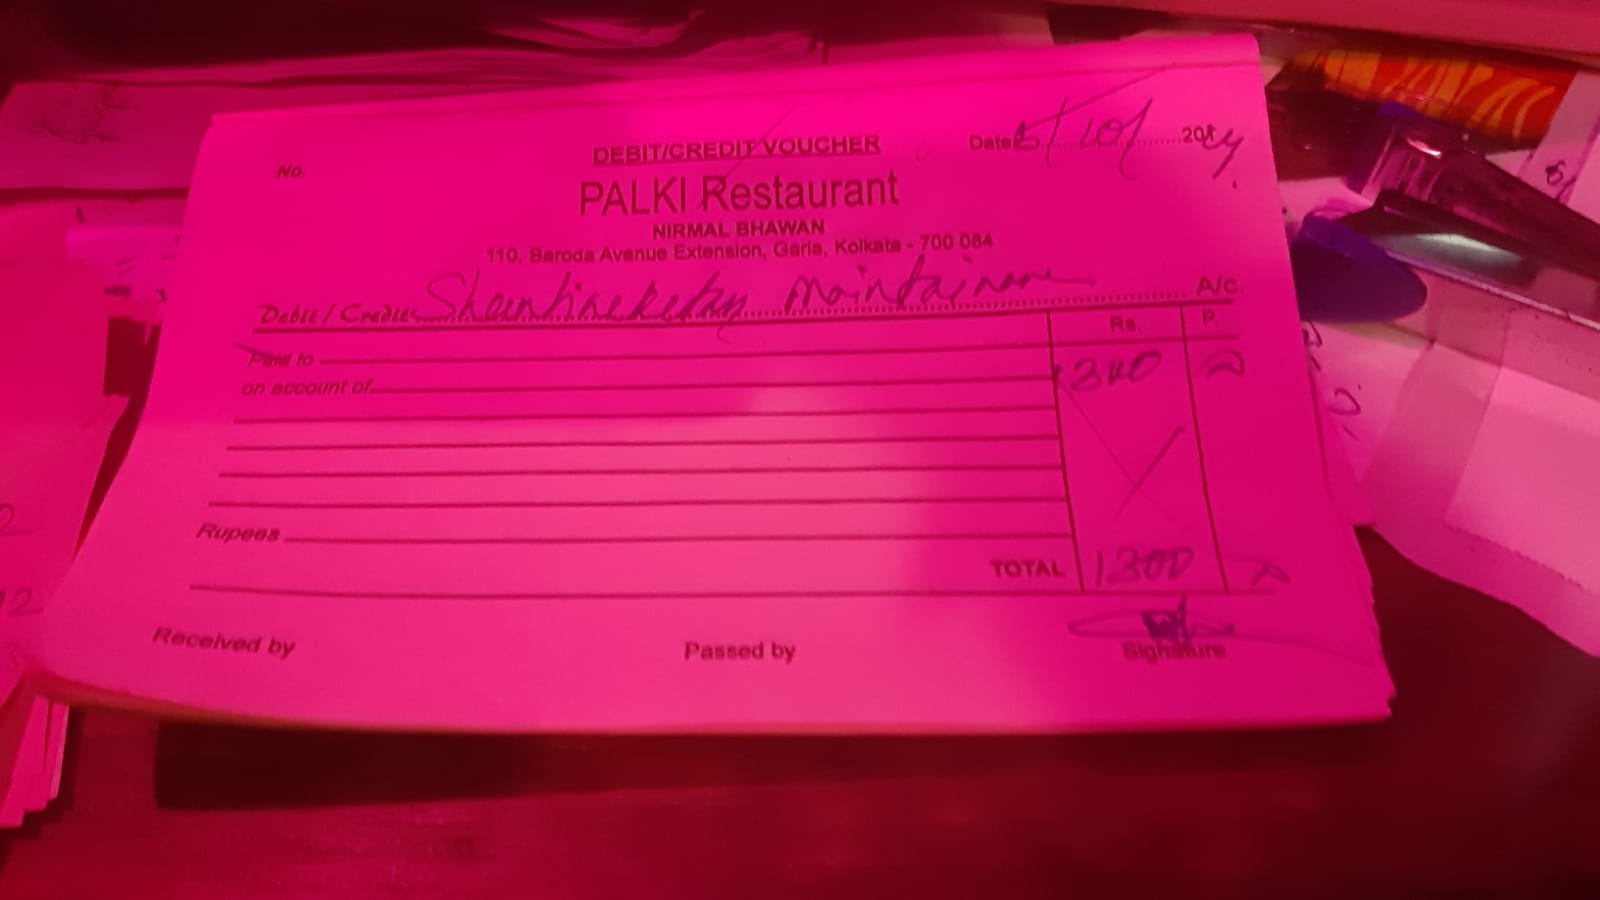 DEBIT/CREDIT VOUCHER
No.
Date 5/10/ 2024
PALKI Restaurant
NIRMAL BHAWAN
110, Baroda Avenue Extension, Garia, Kolkata - 700 084
Debit / Credit Shantineketan Maintainance A/c.
Rs. P.
Paid to
on account of
Rupees
TOTAL 1300
Received by Passed by Signature